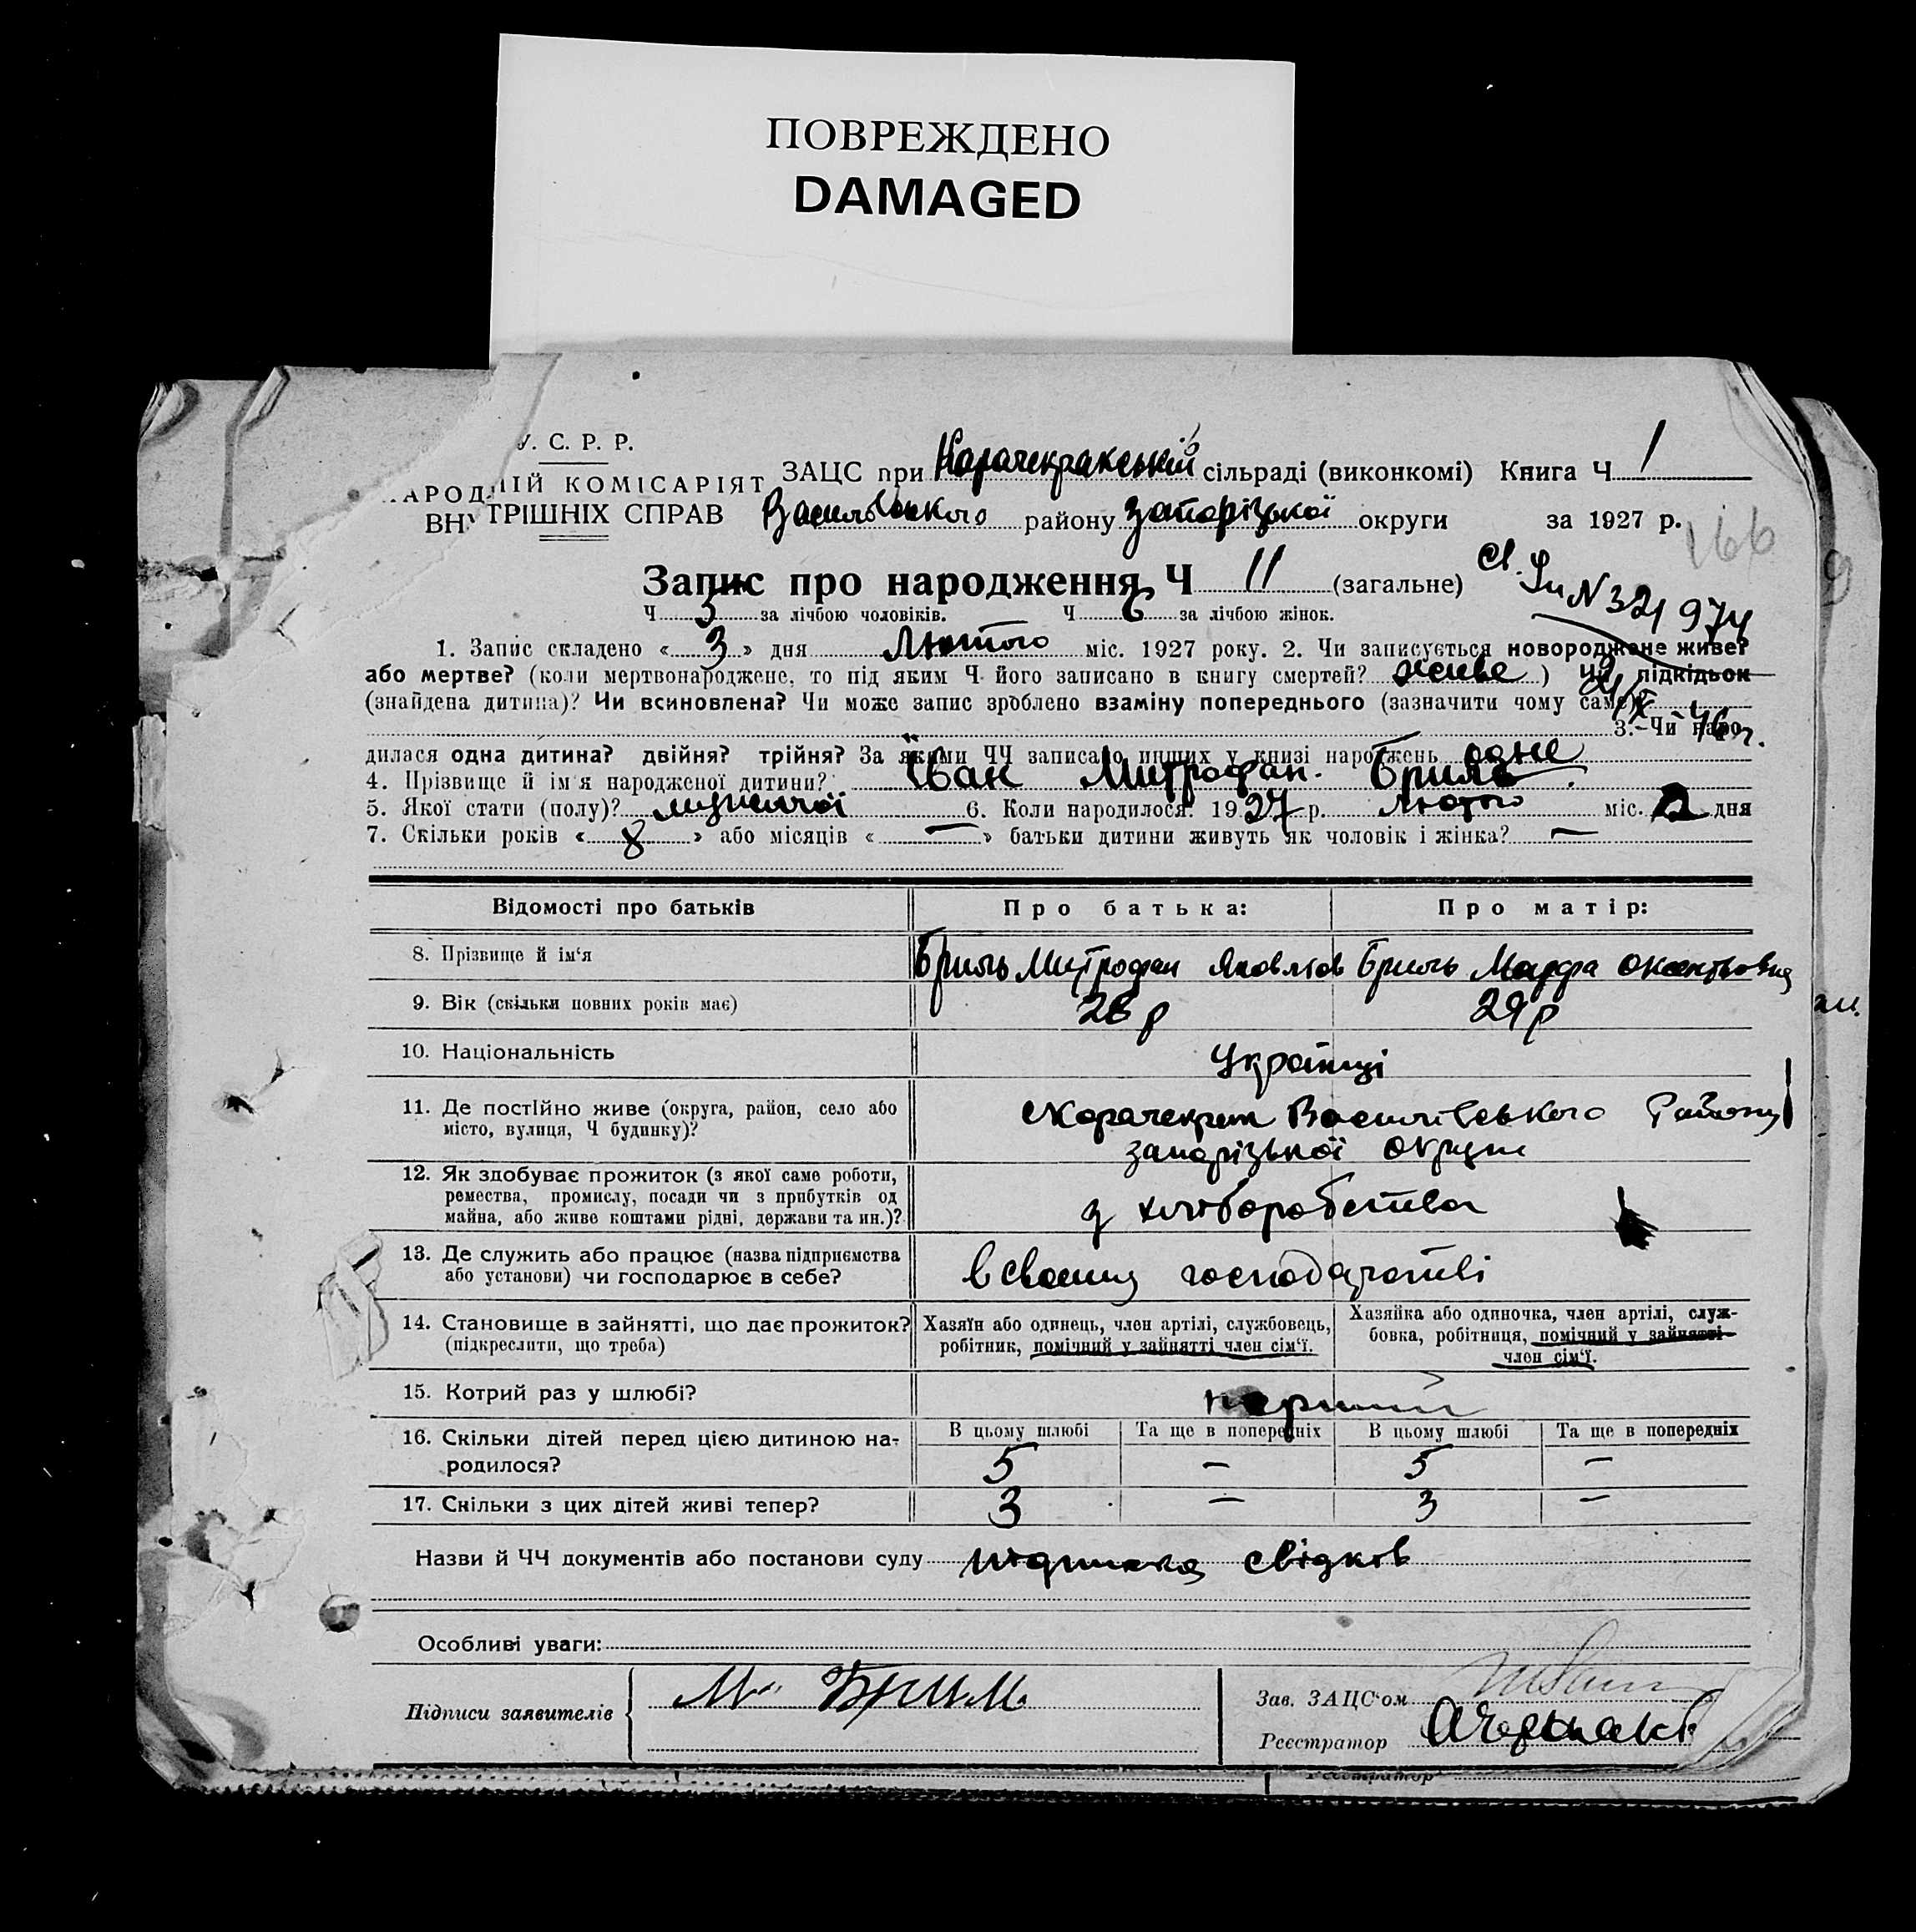 ПОВРЕЖДЕНО
DAMAGED
У. С. Р. Р.
НАРОДНІЙ КОМІСАРІЯТ
ВНУТРІШНІХ СПРАВ
ЗАЦС при Карачекракській сільраді (виконкомі) Книга Ч 1
Василівського району Запорізької округи за 1927 р.
166
Запис про народження Ч 11 (загальне)
Ч 5 за лічбою чоловіків. Ч 6 за лічбою жінок.
N 321974
1. Запис складено « 3 » дня Лютого міс. 1927 року. 2. Чи записується новороджене живе?
або мертве? (коли мертвонароджене, то під яким Ч його записано в книгу смертей? живе ) чи підкідьок
(знайдена дитина)? Чи всиновлена? Чи може запис зроблено взаміну попереднього (зазначити чому саме)?
3. Чи наро-
дилася одна дитина? двійня? трійня? За якими ЧЧ записано инших у книзі народжень одне
4. Прізвище й ім'я народженої дитини? Іван Митрофан. Бриль.
5. Якої стати (полу)? мужичої 6. Коли народилося: 1927 р. лютого міс. 2 дня
7. Скільки років « 8 » або місяців « — » батьки дитини живуть як чоловік і жінка? —
Відомості про батьків Про батька: Про матір:
8. Прізвище й ім'я Бриль Митрофан Яковлів Бриль Марфа
9. Вік (скільки повних років має) 28 р 29 р
10. Національність Українці
11. Де постійно живе (округа, район, село або
місто, вулиця, Ч будинку)? с Карачекрак Василівського Району
запорізької округи
12. Як здобуває прожиток (з якої саме роботи,
ремества, промислу, посади чи з прибутків од
майна, або живе коштами рідні, держави та ин.)? з хліборобства
13. Де служить або працює (назва підприємства
або установи) чи господарює в себе? в своєму господарстві
14. Становище в зайнятті, що дає прожиток?
(підкреслити, що треба)
Хазяїн або одинець, член артілі, службовець,
робітник, помічний у зайнятті член сім'ї.
Хазяйка або одиночка, член артілі, служ-
бовка, робітниця, помічний у зайнятті
член сім'ї.
15. Котрий раз у шлюбі? перший
16. Скільки дітей перед цією дитиною на-
родилося?
В цьому шлюбі Та ще в попередніх В цьому шлюбі Та ще в попередніх
5 — 5 —
17. Скільки з цих дітей живі тепер? 3 — 3 —
Назви й ЧЧ документів або постанови суду підписка свідків
Особливі уваги:
Підписи заявителів М. Брил.
Зав. ЗАЦС'ом
Реєстратор
Реєстратор